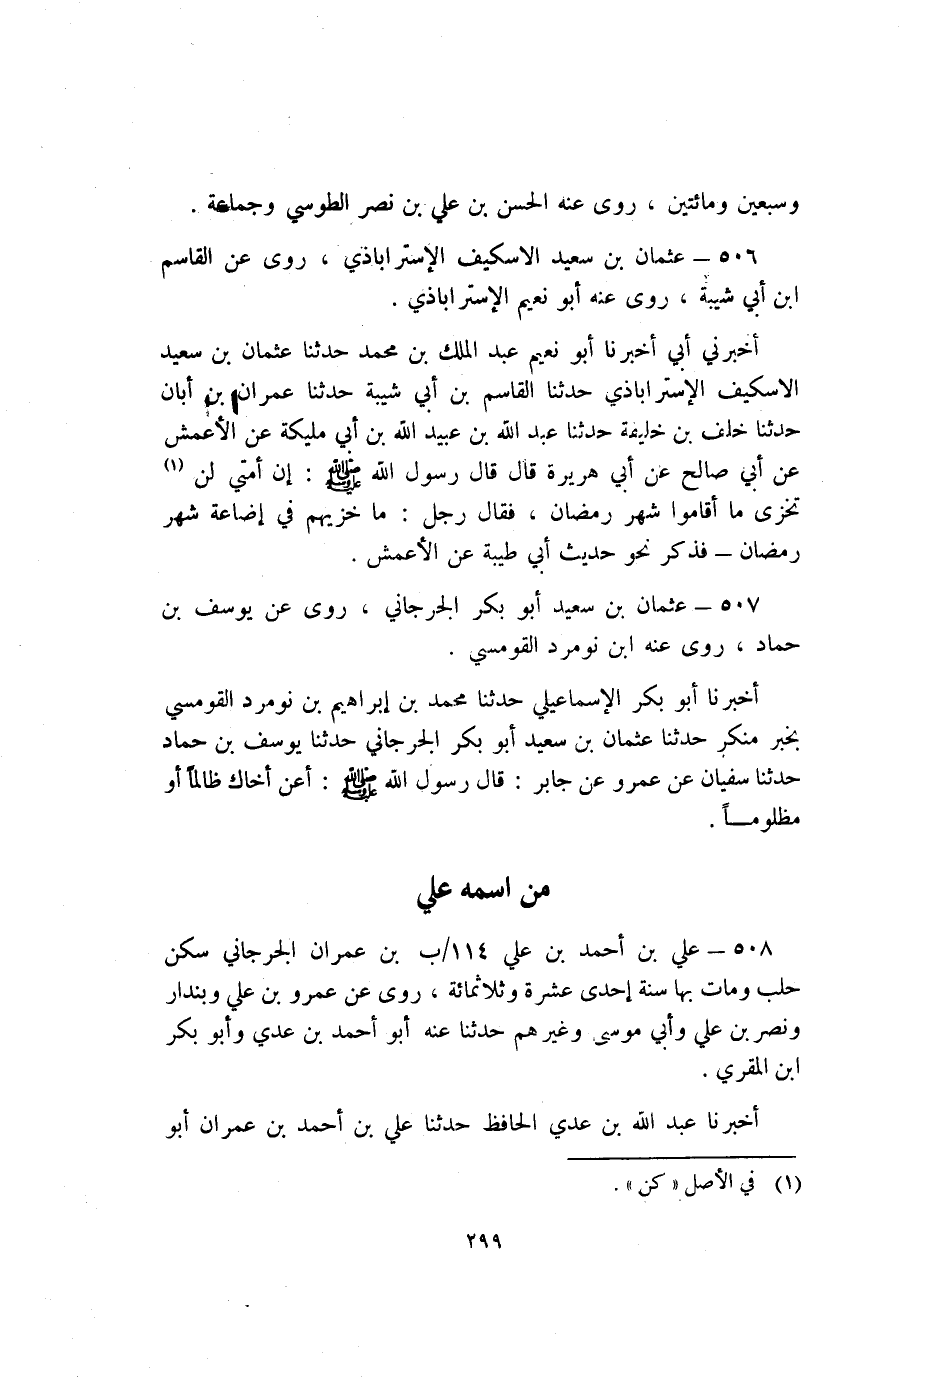 وسبعين ومائتين ، روى عنه الحسن بن علي بن نصر الطوسي وجماعة .
٥٠٦ ــ عثمان بن سعيد الاسكيف الإستراباذي ، روى عن القاسم
ابن أبي شيبة ، روى عنه أبو نعيم الإستراباذي .
أخبرني أبي أخبرنا أبو نعيم عبد الملك بن محمد حدثنا عثمان بن سعيد
الاسكيف الإستراباذي حدثنا القاسم بن أبي شيبة حدثنا عمران بن أبان
حدثنا خلف بن خليفة حدثنا عبد الله بن عبيد الله بن أبي مليكة عن الأعمش
عن أبي صالح عن أبي هريرة قال قال رسول الله ﷺ : إن أمتي لن (١)
تخزى ما أقاموا شهر رمضان ، فقال رجل : ما خزيهم في إضاعة شهر
رمضان ــ فذكر نحو حديث أبي طيبة عن الأعمش .
٥٠٧ ــ عثمان بن سعيد أبو بكر الجرجاني ، روى عن يوسف بن
حماد ، روى عنه ابن نومرد القومسي .
أخبرنا أبو بكر الإسماعيلي حدثنا محمد بن إبراهيم بن نومرد القومسي
بخبر منكر حدثنا عثمان بن سعيد أبو بكر الجرجاني حدثنا يوسف بن حماد
حدثنا سفيان عن عمرو عن جابر : قال رسول الله ﷺ : أعن أخاك ظالماً أو
مظلومــاً .
من اسمه علي
٥٠٨ ــ علي بن أحمد بن علي ١١٤/ب بن عمران الجرجاني سكن
حلب ومات بها سنة إحدى عشرة وثلاثمائة ، روى عن عمرو بن علي وبندار
ونصر بن علي وأبي موسى وغيرهم حدثنا عنه أبو أحمد بن عدي وأبو بكر
ابن المقري .
أخبرنا عبد الله بن عدي الحافظ حدثنا علي بن أحمد بن عمران أبو
(١) في الأصل « كن » .
٢٩٩